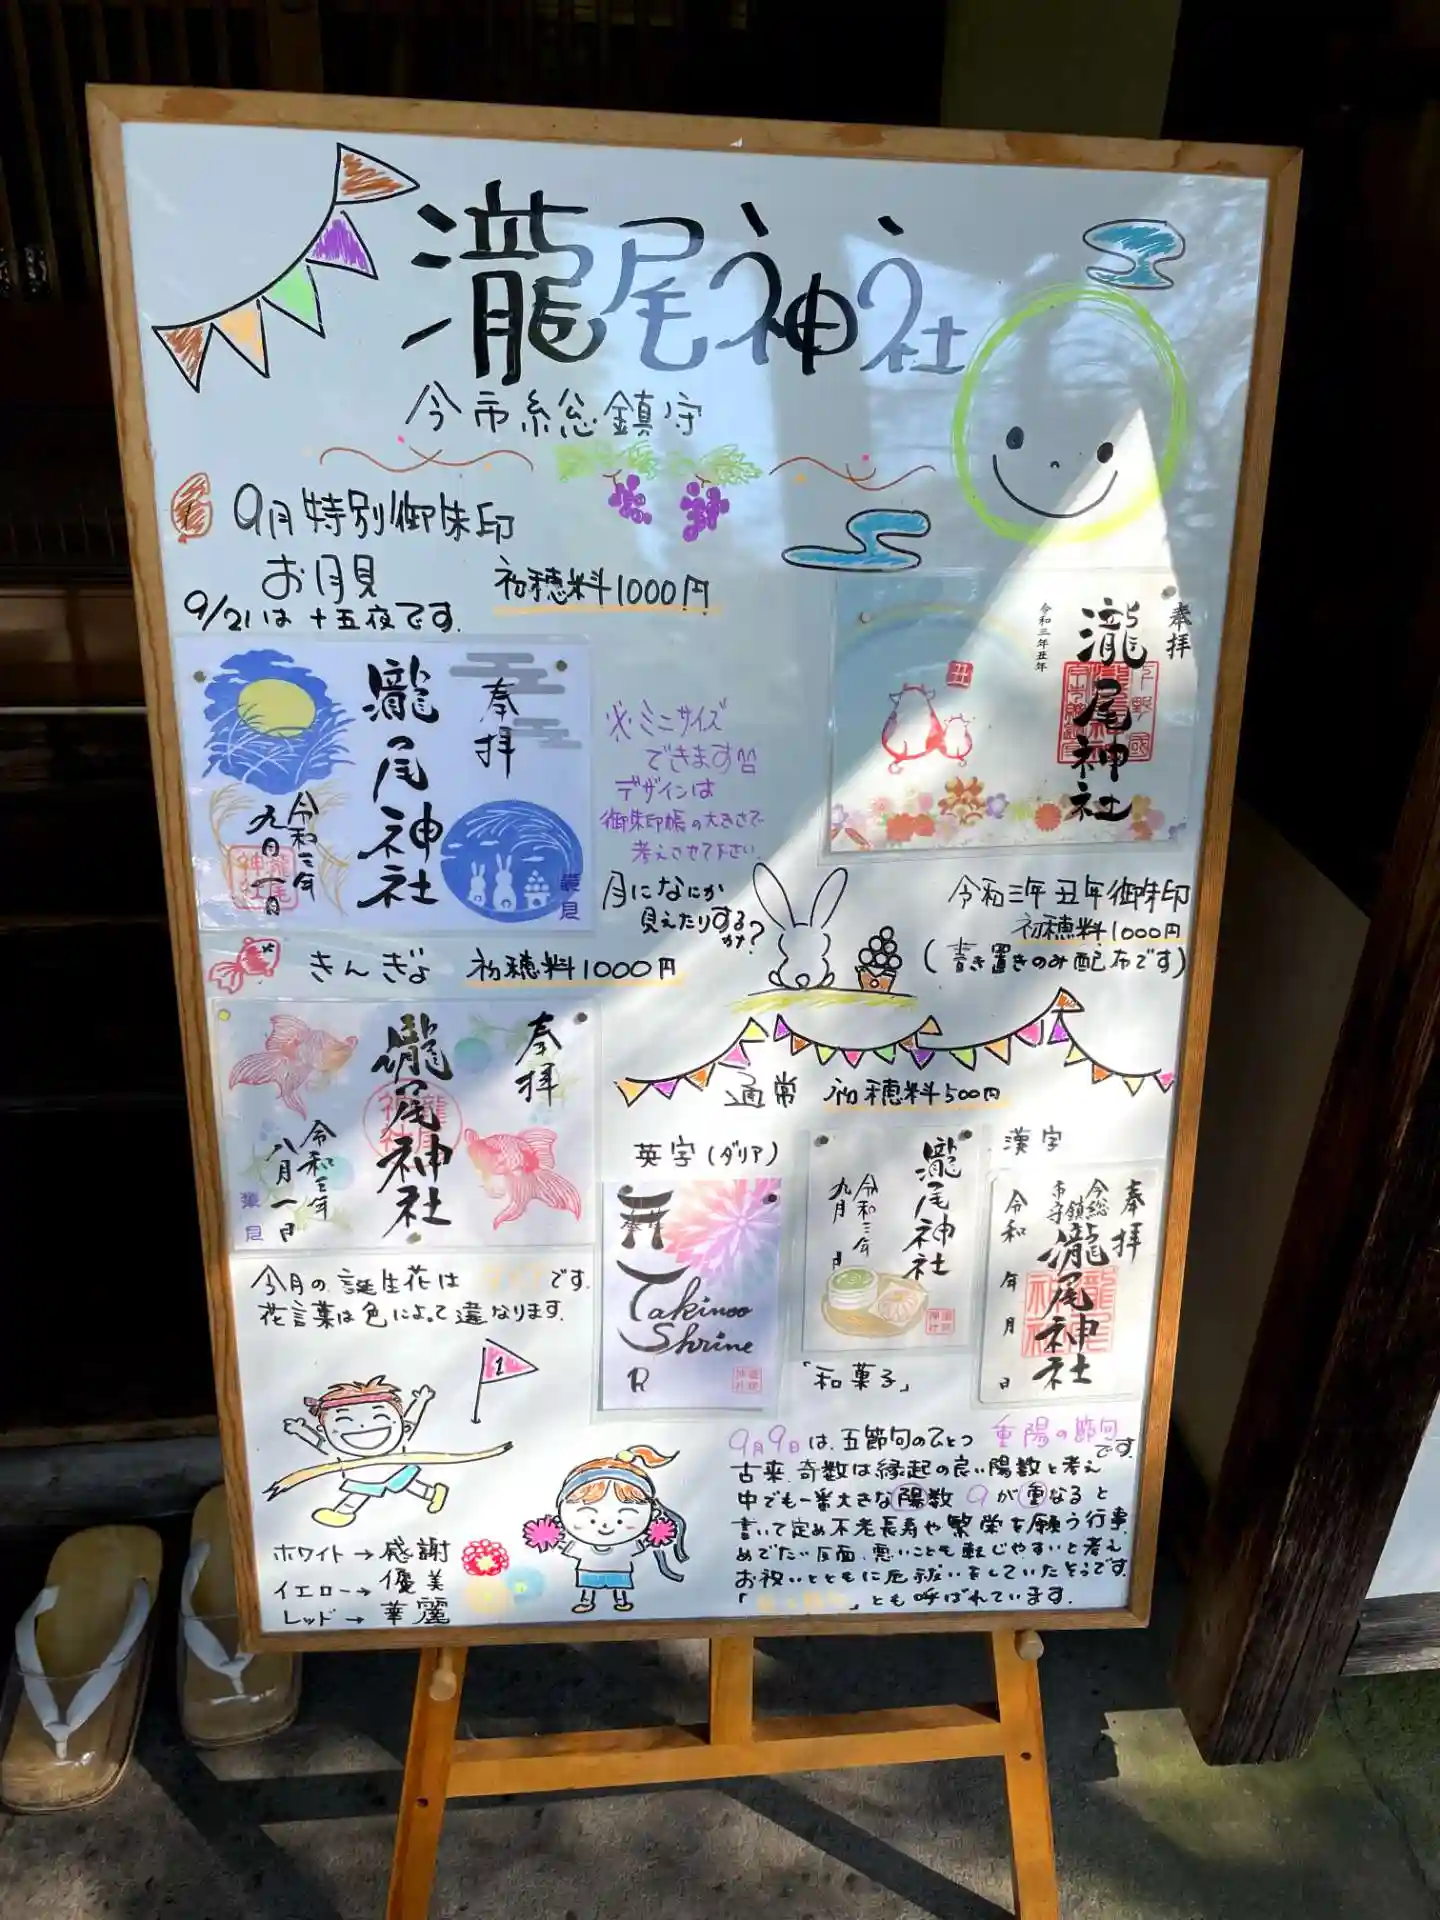 瀧尾神社
今市総鎮守
9月特別御朱印
お月見
初穂料1000円
9/21は十五夜です.
奉拝
瀧尾神社
令和三年
九月一日
※ミニサイズ
できます
デザインは
御朱印帳の大きさで
考えさせて下さい.
月になにか
見えたりする
かな?
奉拝
瀧尾神社
令和三年丑年
丑
令和三年丑年御朱印
初穂料1000円
(書き置きのみ配布です)
きんぎょ
初穂料1000円
奉拝
瀧尾神社
令和三年
八月一日
通常 初穂料500円
英字(ダリア)
奉拝
Takinoo
Shrine
R
瀧尾神社
令和三年
九月 日
「和菓子」
漢字
奉拝
今市総鎮守
瀧尾神社
令和 年 月 日
今月の誕生花は です.
花言葉は色によって違なります.
1
ホワイト→感謝
イエロー→優美
レッド→華麗
9月9日は、五節句のひとつ 重陽の節句
です.
古来、奇数は縁起の良い陽数と考え
中でも一番大きな陽数 9が重なると
書いて定め不老長寿や繁栄を願う行事.
めでたい反面、悪いことも転じやすいと考え
お祝いとともに厄祓いをしていたそうです.
「 」とも呼ばれています.